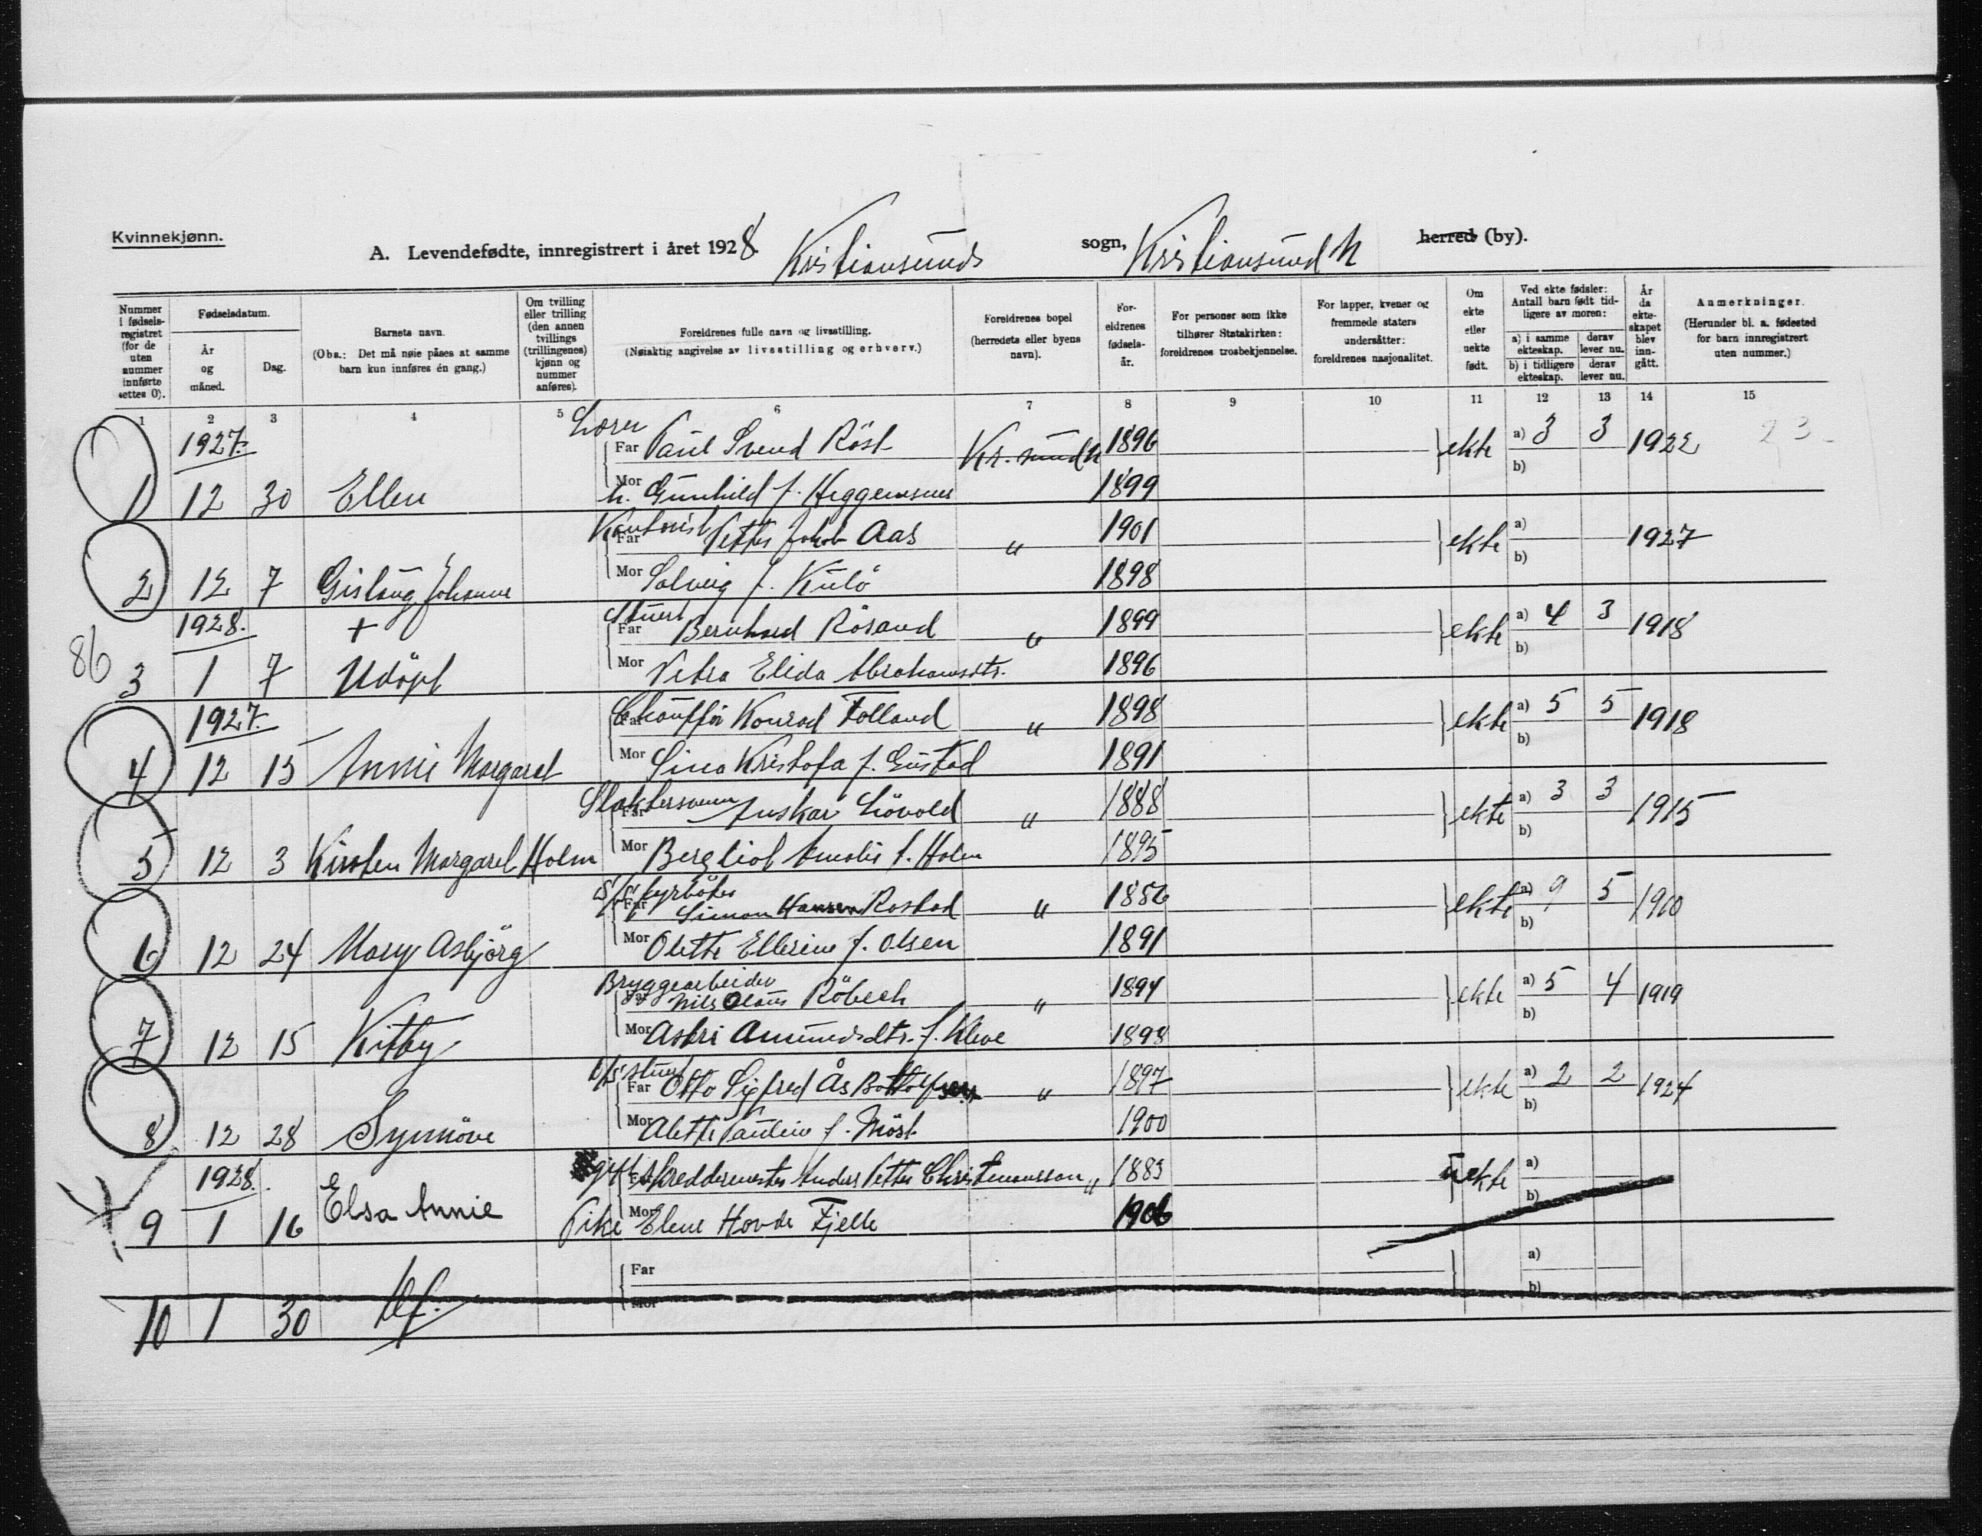 Kvinnekjønn.
A. Levendefødte, innregistrert i året 1928. Kristiansunds sogn, Kristiansund N herred (by).
Nummer i fødselsregistret (for de uten nummer innførte settes 0).
Fødselsdatum.
År og måned.
Dag.
Barnets navn.
(Obs.: Det må nøie påses at samme barn kun innføres én gang.)
Om tvilling eller trilling (den annen tvillings (trillingenes) kjønn og nummer anføres).
Foreldrenes fulle navn og livsstilling.
(Nøiaktig angivelse av livsstilling og erhverv.)
Foreldrenes bopel (herredets eller byens navn).
Foreldrenes fødselsår.
For personer som ikke tilhører Statskirken: foreldrenes trosbekjennelse.
For lapper, kvener og fremmede staters undersåtter: foreldrenes nasjonalitet.
Om ekte eller uekte født.
Ved ekte fødsler: Antall barn født tidligere av moren:
a) i samme ekteskap. derav lever nu.
b) i tidligere ekteskap. derav lever nu.
År da ekteskapet blev inngått.
Anmerkninger.
(Herunder bl. a. fødested for barn innregistrert uten nummer.)
1 2 3 4 5 6 7 8 9 10 11 12 13 14 15
1927. Lærer Far Paul Svend Röst Kr.sund N 1896 ekte a) 3 3 1922 23
1 12 30 Ellen Mor h. Gunhild f. Heggemsnes 1899 b)
Kontorist Far Petter Jakob Aas " 1901 ekte a) 1927
2 12 7 Gislaug Johanne Mor Solveig f. Kulö 1898 b)
1928. + Stuert Far Bernhard Rösand " 1899 ekte a) 4 3 1918
86 3 1 7 Udöpt Mor Petra Elida Abrahamsdtr. 1896 b)
1927. Chaufför Far Konrad Folland " 1898 ekte a) 5 5 1918
4 12 15 Annie Margaret Mor Sina Kristofa f. Gustad 1891 b)
Slaktersvenn Far Anskar Lövold " 1888 ekte a) 3 3 1915
5 12 3 Kirsten Margaret Holm Mor Bergliot Amalie f. Holm 1895 b)
S/S fyrböter Far Simon Hansen Rostad " 1886 ekte a) 9 5 1910
6 12 24 Mary Asbjörg Mor Olette Ellerine f. Olsen 1891 b)
Bryggearbeider Far Nils Olaus Röbech " 1894 ekte a) 5 4 1919
7 12 15 Kitty Mor Astri Amundsdtr. f. Kleve 1898 b)
D/S stuert Far Otto Sigfred Ås Bottolfsen " 1897 ekte a) 2 2 1924
8 12 28 Synnöve Mor Alette Pauline f. Möst 1900 b)
1928. gift Far skreddermester Anders Petter Christiansson " 1883 uekte a)
9 1 16 Elsa Annie Pike Mor Elene Hovde Fjelle 1906 b)
Far a)
10 1 30 Mor b)